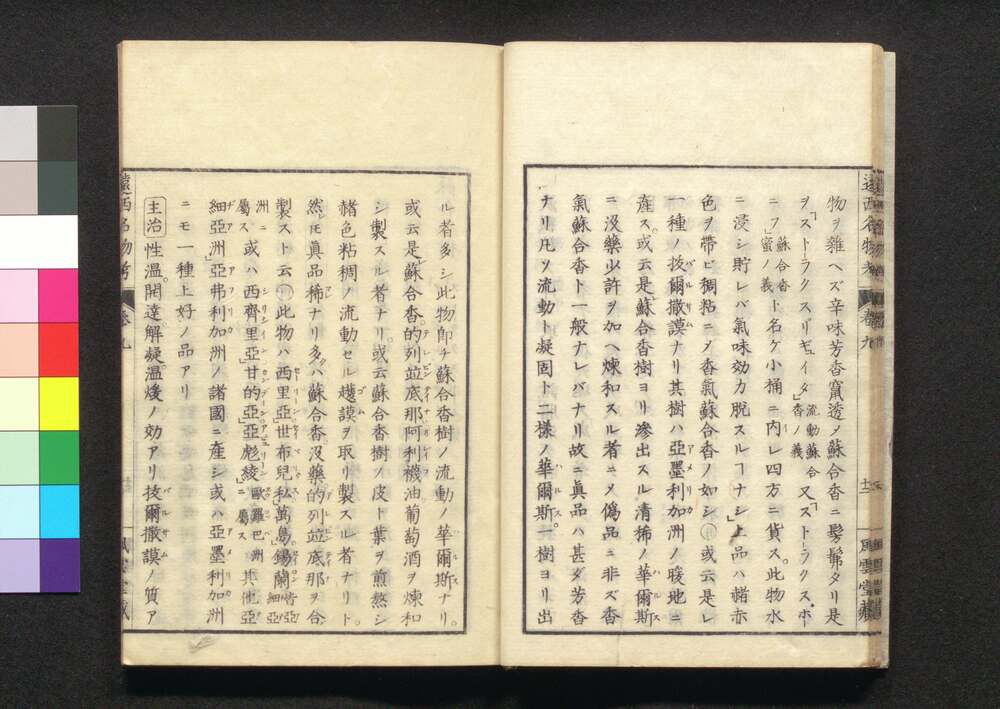 物ヲ雜ヘズ辛味芳香竄透〆蘇合香ニ髣髴タリ是
ヲ「ストラクスリギュイダ」流動蘇合香ノ義又「ストーラクスホー
ニフ」蘇合香蜜ノ義ト名ケ小桶ニ内レ四方ニ貨ス。此物水
ニ浸シ貯レバ氣味効力脱スルヿナシ」上品ハ赭赤
色ヲ帶ビ稠粘ニ〆香氣蘇合香ノ如シ○或云是レ
一種ノ拔爾撒謨ナリ其樹ハ亞墨利加洲ノ暖地ニ
産ス。或云是蘇合香樹ヨリ滲出スル清稀ノ華爾斯
ニ没藥少許ヲ加ヘ煉和スル者ニ〆僞品ニ非ズ香
氣蘇合香ト一般ナレバナリ故ニ眞品ハ甚ダ芳香
ナリ凡ソ流動ト凝固ト二樣ノ華爾斯一樹ヨリ出
遠西名物考 卷九 十二 風雲堂藏
ル者多シ此物即チ蘇合香樹ノ流動ノ華爾斯ナリ。
或云是蘇合香的列並底那阿利襪油葡萄酒ヲ煉和
シ製スル者ナリ。或云蘇合香樹ノ皮ト葉ヲ煎熬シ
赭色粘稠ノ流動セル護謨ヲ取リ製スル者ナリト。
然レ𪜈眞品稀ナリ多クハ蘇合香没藥的列並底那ヲ合
製スト云○此物ハ西里亞世布兒私萬島錫蘭皆亞細亞
洲ニ屬ス或ハ西齊里亞甘的亞亞彪綾歐羅巴洲ニ屬ス其他亞
細亞洲亞弗利加洲ノ諸國ニ産シ或ハ亞墨利加洲
ニモ一種上好ノ品アリ
主治 性温開達解凝温煖ノ効アリ拔爾撒謨ノ質ア
遠西名物考 卷九